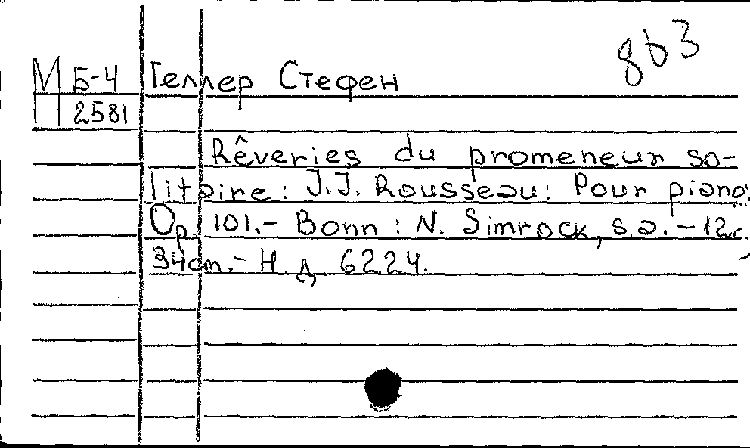 863
М Б-4 Геллер Стефен
П 2581
Rêveries du promeneur so-
litaire: J.J. Rousseau: Pour piano.
Op. 101.- Bonn: N. Simrock, s.a. - 12 с.
34 cm. - Н. д. 6224.